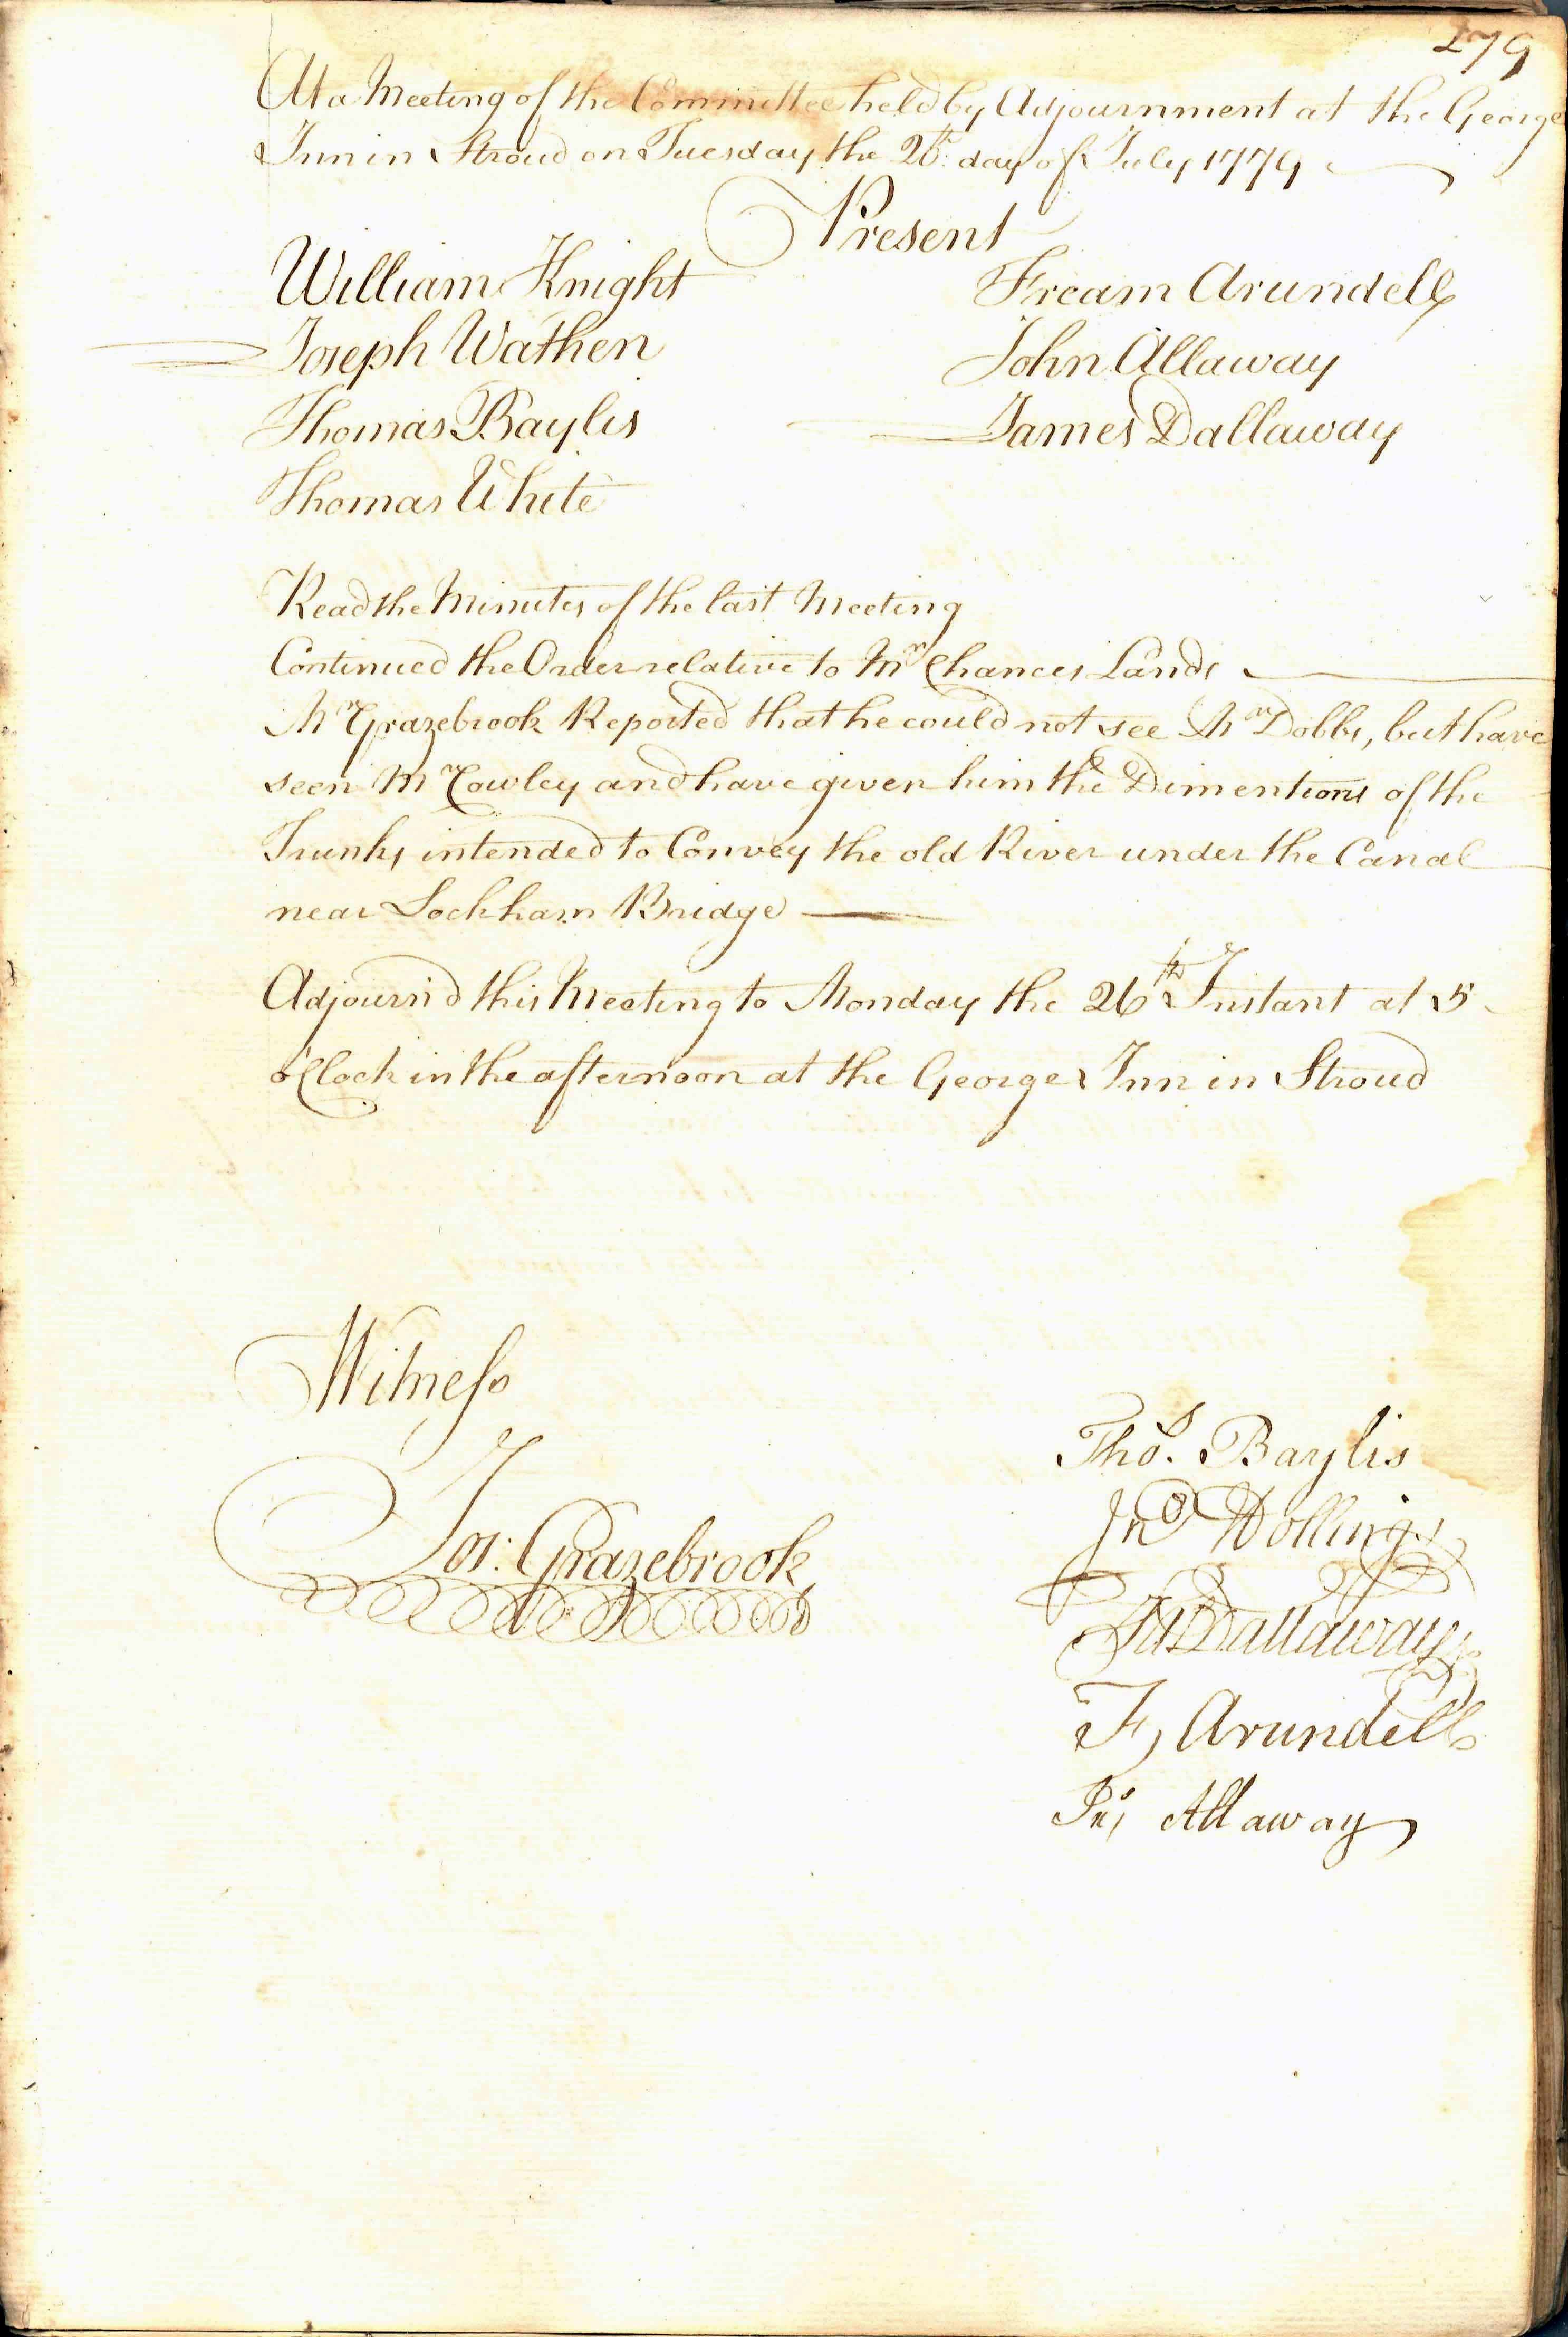 279
At a Meeting of the Committee held by Adjournment at the George
Inn in Stroud on Tuesday the 20th: day of July 1779
Present
William Knight Fream Arundell
Joseph Wathen John Allaway
Thomas Baylis James Dallaway
Thomas White
Read the Minutes of the last Meeting
Continued the Order relative to Mr Chances Lands
Mr Grazebrook Reported that he could not see Mr Dobbs, but have
seen Mr Cowley and have given him the Dimentions of the
Trunks intended to Convey the old River under the Canal
near Lockham Bridge
Adjourn'd this Meeting to Monday the 26th Instant at 5
o'Clock in the afternoon at the George Inn in Stroud
Witness
Jos: Grazebrook
Thos. Baylis
Jno Hollings
Jas Dallaway
F, Arundell
Jno, Allaway